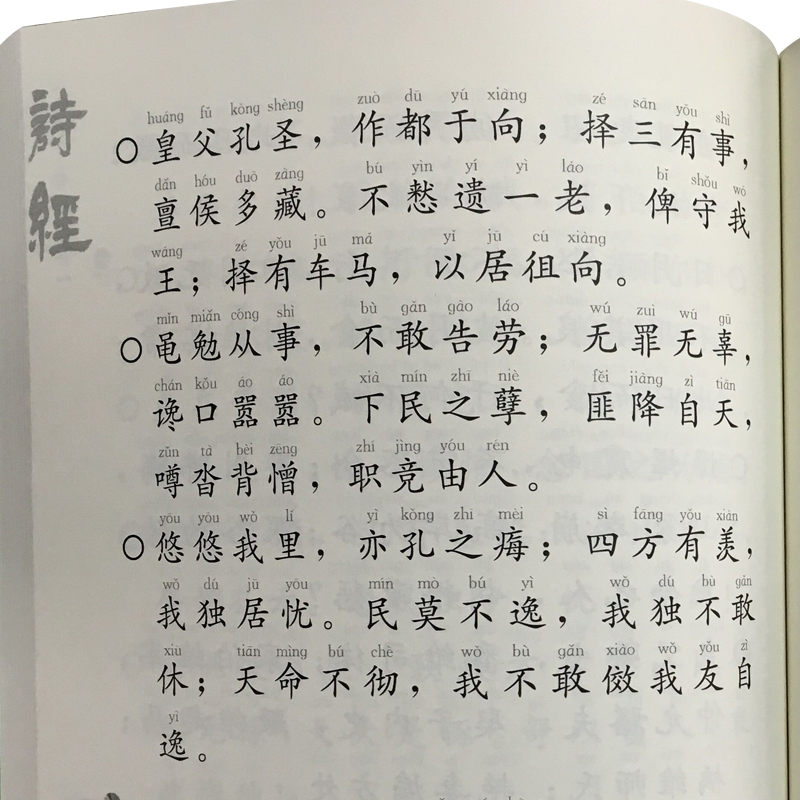 詩經
huáng fǔ kǒng shèng zuò dū yú xiàng zé sān yǒu shì
○皇父孔圣，作都于向；择三有事，
dǎn hóu duō zàng bú yìn yí yì lǎo bǐ shǒu wǒ
亶侯多藏。不慭遗一老，俾守我
wáng zé yǒu jū mǎ yǐ jū cú xiàng
王；择有车马，以居徂向。
mǐn miǎn cóng shì bù gǎn gào láo wú zuì wú gū
○黾勉从事，不敢告劳；无罪无辜，
chán kǒu áo áo xià mín zhī niè fěi jiàng zì tiān
谗口嚣嚣。下民之孽，匪降自天，
zǔn tà bèi zēng zhí jìng yóu rén
噂沓背憎，职竞由人。
yōu yōu wǒ lǐ yì kǒng zhī mèi sì fāng yǒu xiàn
○悠悠我里，亦孔之痗；四方有羡，
wǒ dú jū yōu mín mò bú yì wǒ dú bù gǎn
我独居忧。民莫不逸，我独不敢
xiū tiān mìng bú chè wǒ bù gǎn xiào wǒ yǒu zì
休；天命不彻，我不敢傚我友自
yì
逸。